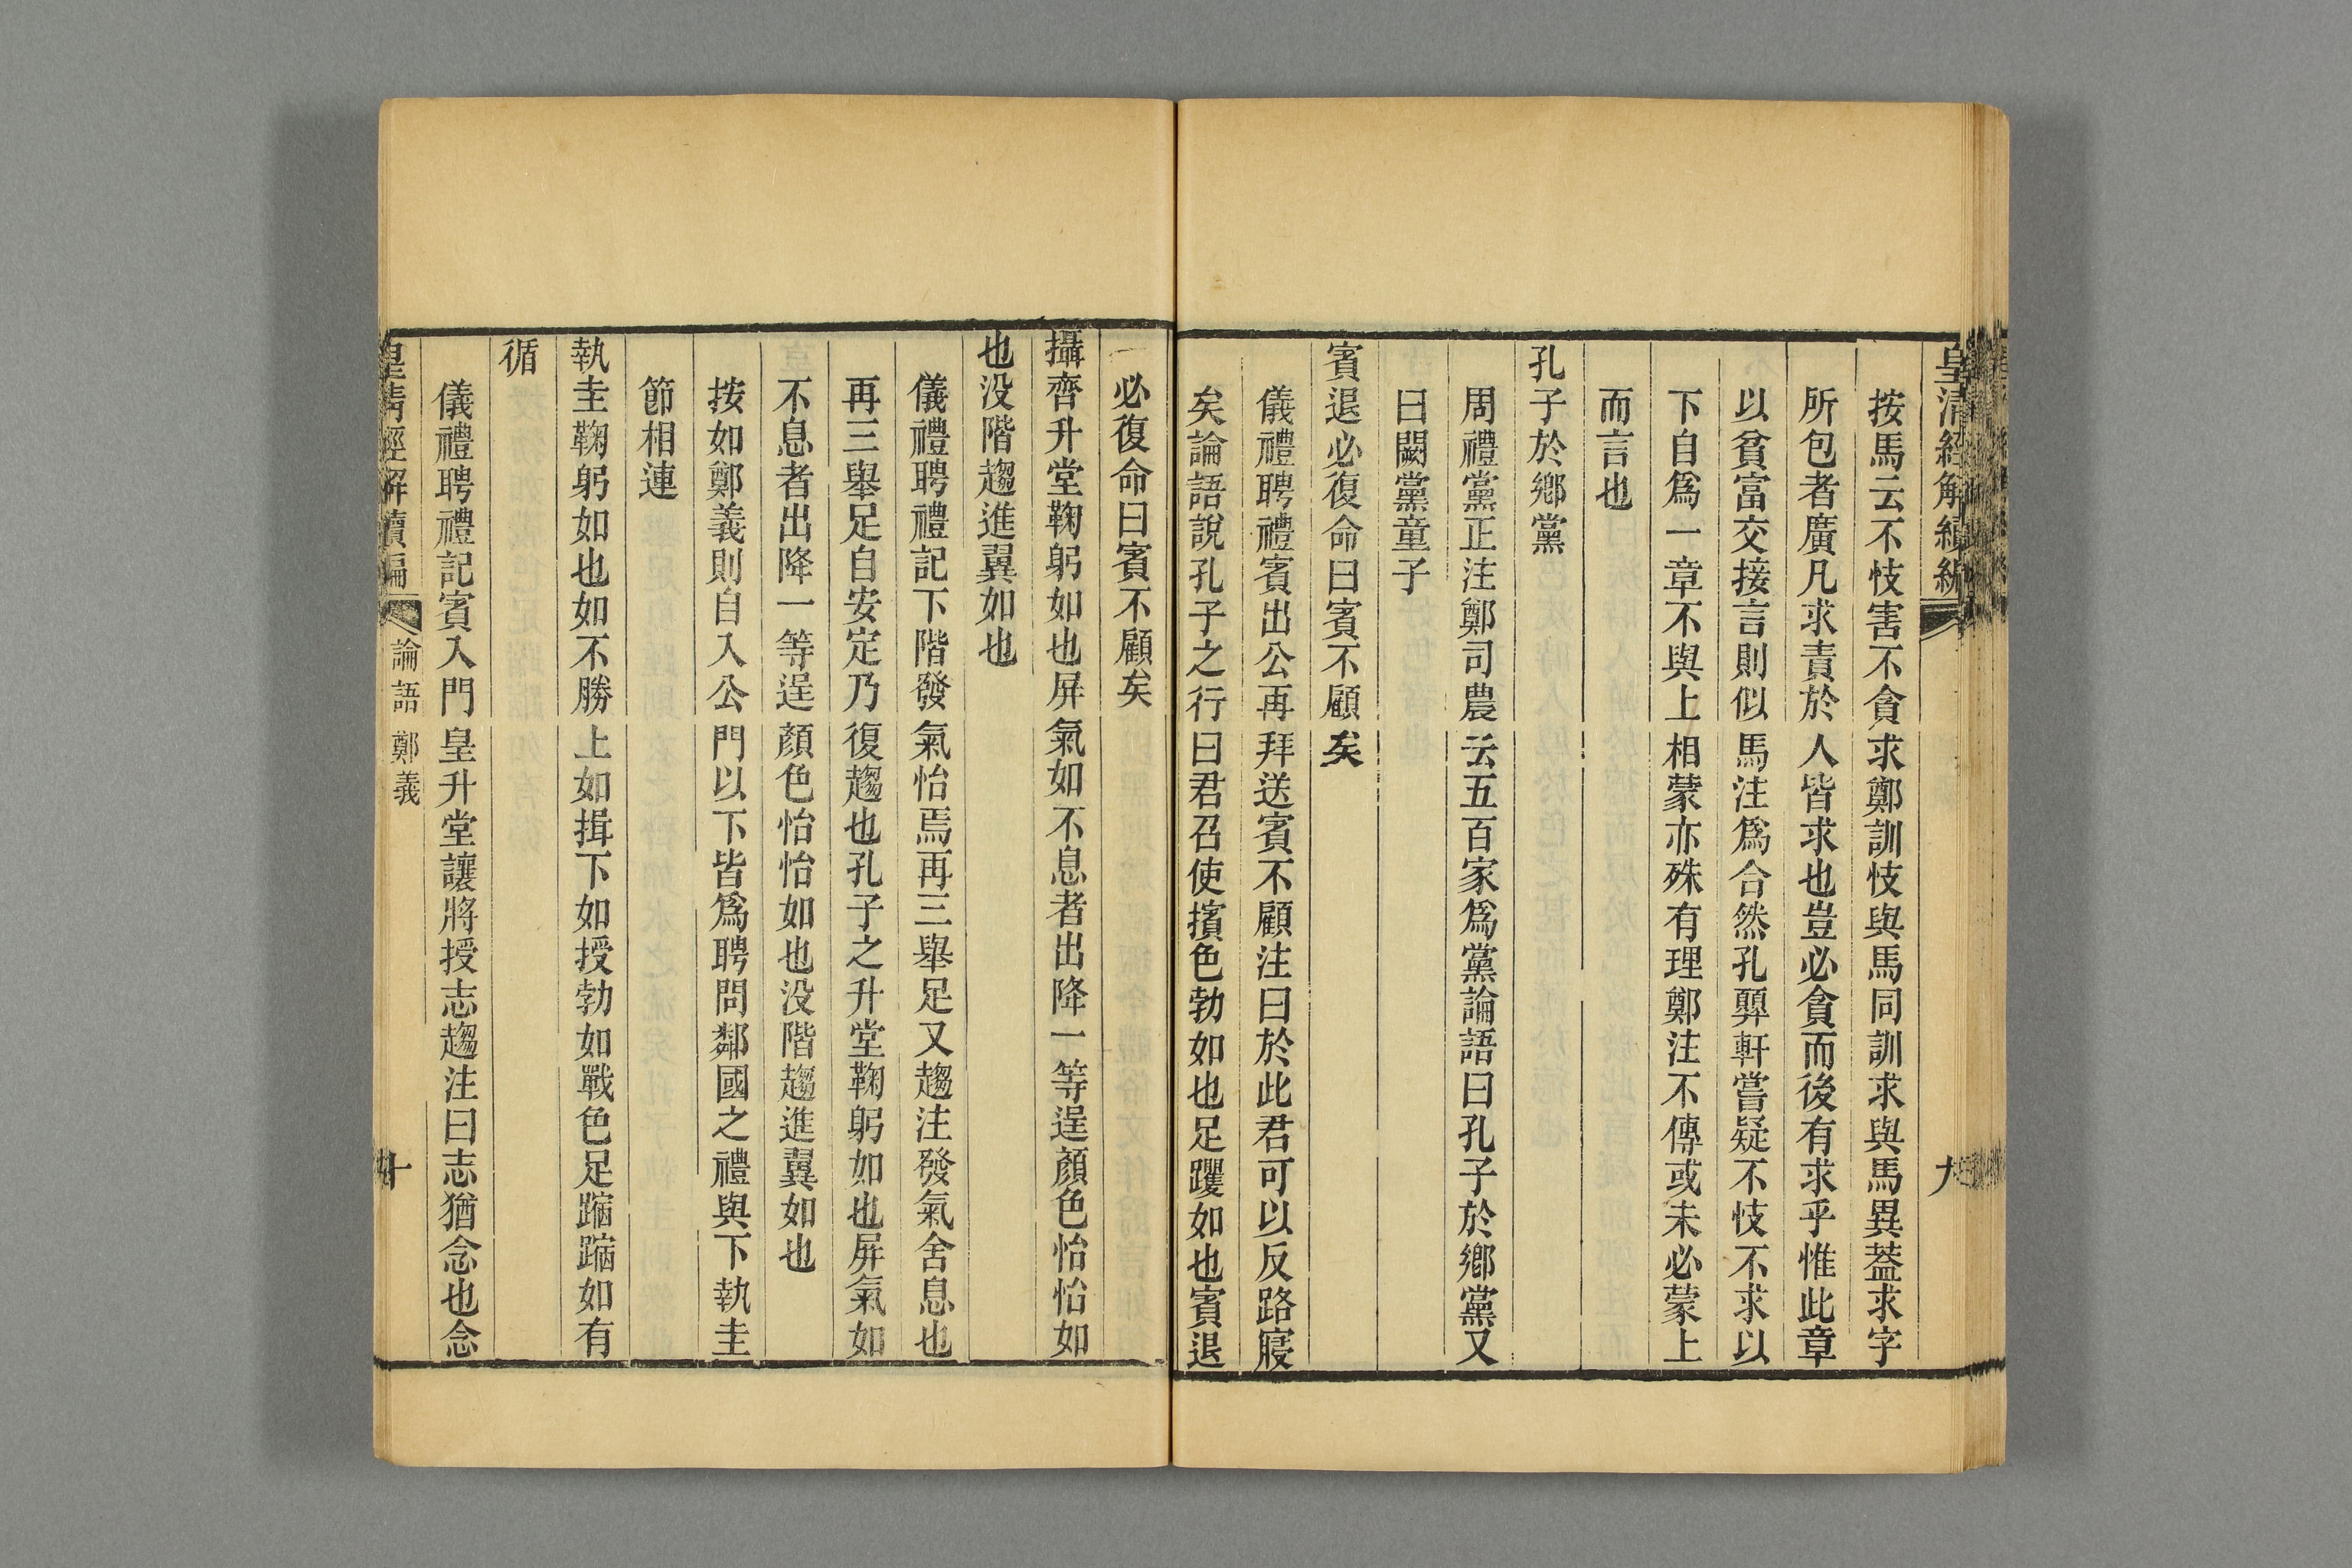 皇清經解續編
九
按馬云不忮害不貪求鄭訓忮與馬同訓求與馬異蓋求字
所包者廣凡求責於人皆求也豈必貪而後有求乎惟此章
以貧富交接言則似馬注爲合然孔顨軒嘗疑不忮不求以
下自爲一章不與上相蒙亦殊有理鄭注不傳或未必蒙上
而言也
孔子於鄉黨
周禮黨正注鄭司農云五百家爲黨論語曰孔子於鄉黨又
曰闕黨童子
賓退必復命曰賓不顧矣
儀禮聘禮賓出公再拜送賓不顧注曰於此君可以反路寢
矣論語說孔子之行曰君召使擯色勃如也足躩如也賓退
必復命曰賓不顧矣
攝齊升堂鞠躬如也屏氣如不息者出降一等逞顏色怡怡如
也没階趨進翼如也
儀禮聘禮記下階發氣怡焉再三舉足又趨注發氣舍息也
再三舉足自安定乃復趨也孔子之升堂鞠躬如也屏氣如
不息者出降一等逞顏色怡怡如也没階趨進翼如也
按如鄭義則自入公門以下皆爲聘問鄰國之禮與下執圭
節相連
執圭鞠躬如也如不勝上如揖下如授勃如戰色足蹜蹜如有
循
儀禮聘禮記賓入門皇升堂讓將授志趨注曰志猶念也念
皇清經解續編
論語鄭義
十